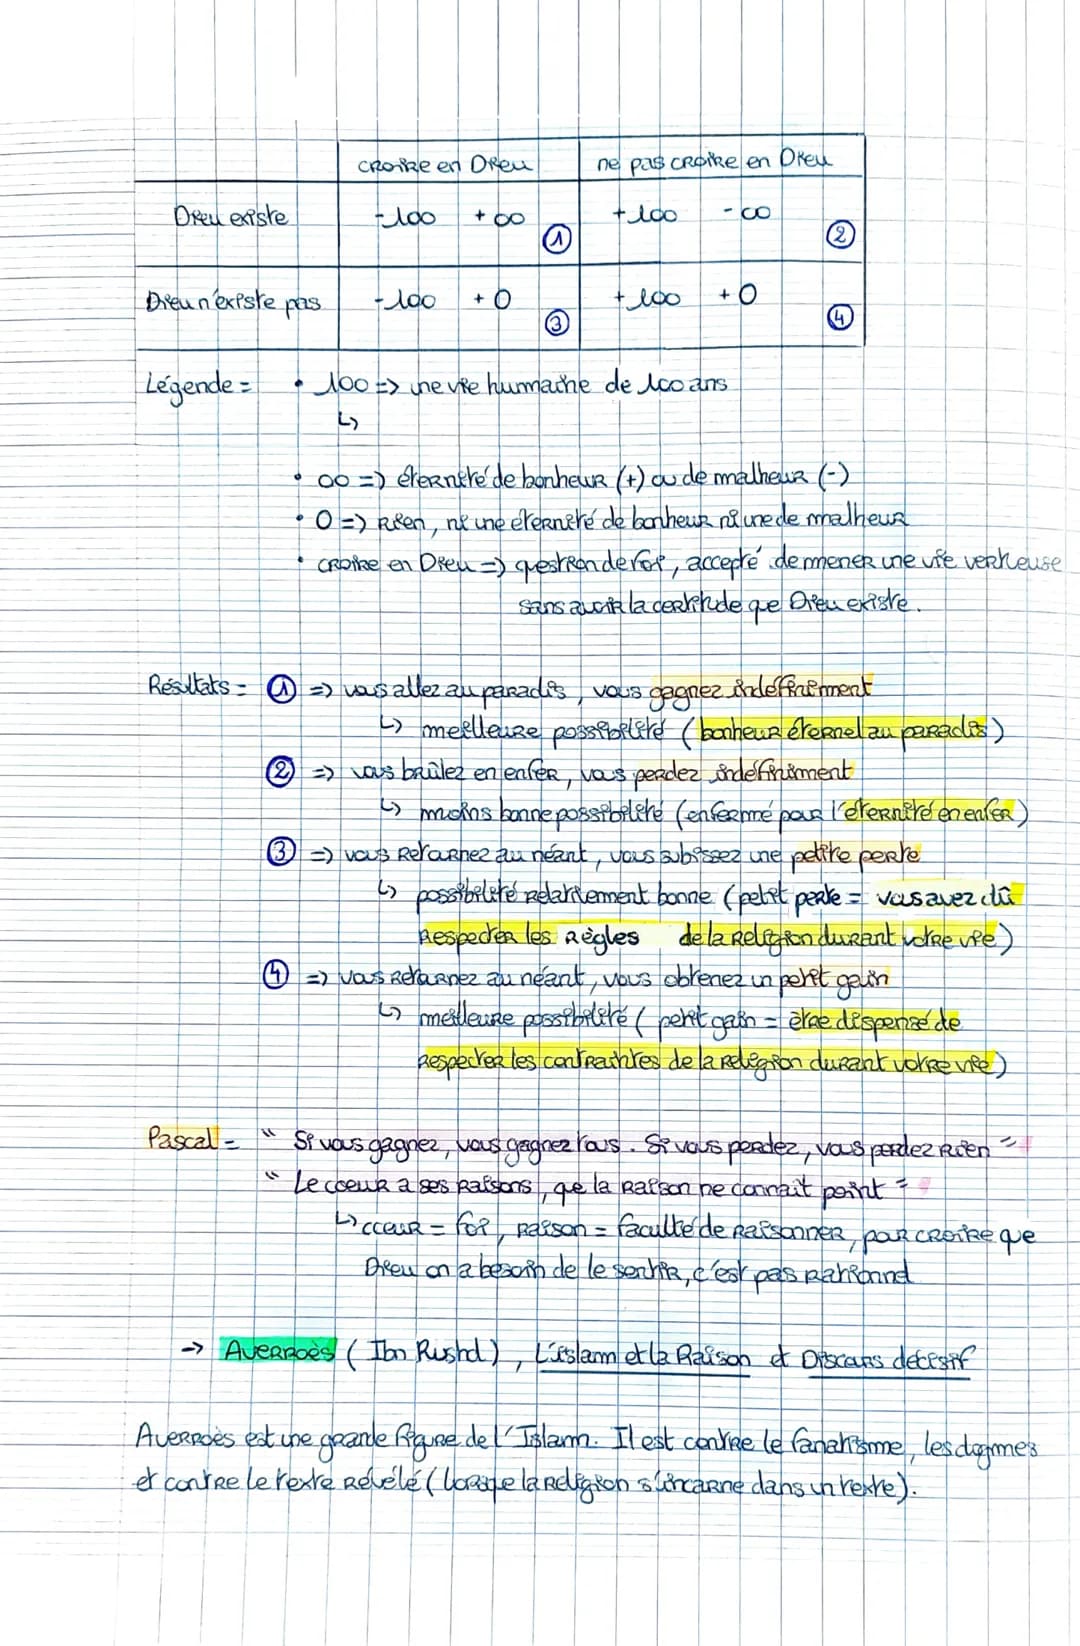 croire en Dieu | ne pas croire en Dieu
Dieu existe | -100 +∞ ① | +100 -∞ ②
Dieu n'existe pas | -100 +0 ③ | +100 +0 ④
Légende = • 100 => une vie humaine de 100 ans
↳
• ∞ => éternité de bonheur (+) ou de malheur (-)
• 0 => Rien, ni une éternité de bonheur ni une de malheur
• croire en Dieu => question de foi, accepté de mener une vie vertieuse
sans avoir la certitude que Dieu existe.
Résultats = ① => vous allez au paradis, vous gagnez indéfiniment
↳ meilleure possibilité (bonheur éternel au paradis)
② => vous brûlez en enfer, vous perdez indéfiniment
↳ moins bonne possibilité (enfermé pour l'éternité en enfer)
③ => vous retournez au néant, vous subissez une petite perte
↳ possibilité relativement bonne (petit perte = vous avez dû
respecter les règles de la religion durant votre vie)
④ => vous retournez au néant, vous obtenez un petit gain
↳ meilleure possibilité (petit gain = être dispensé de
respecter les contraintes de la religion durant votre vie)
Pascal = " Si vous gagnez, vous gagnez tous. Si vous perdez, vous perdez rien "
" Le coeur a ses raisons, que la raison ne connait point "
↳ coeur = foi, raison = faculté de raisonner, pour croire que
Dieu on a besoin de le sentir, c'est pas rationnel
→ Averroès (Ibn Rushd), L'islam et la Raison et Discours décisif
Averroès est une grande figure de l'Islam. Il est contre le fanatisme, les dogmes
et contre le texte révélé (lorsque la religion s'incarne dans un texte).